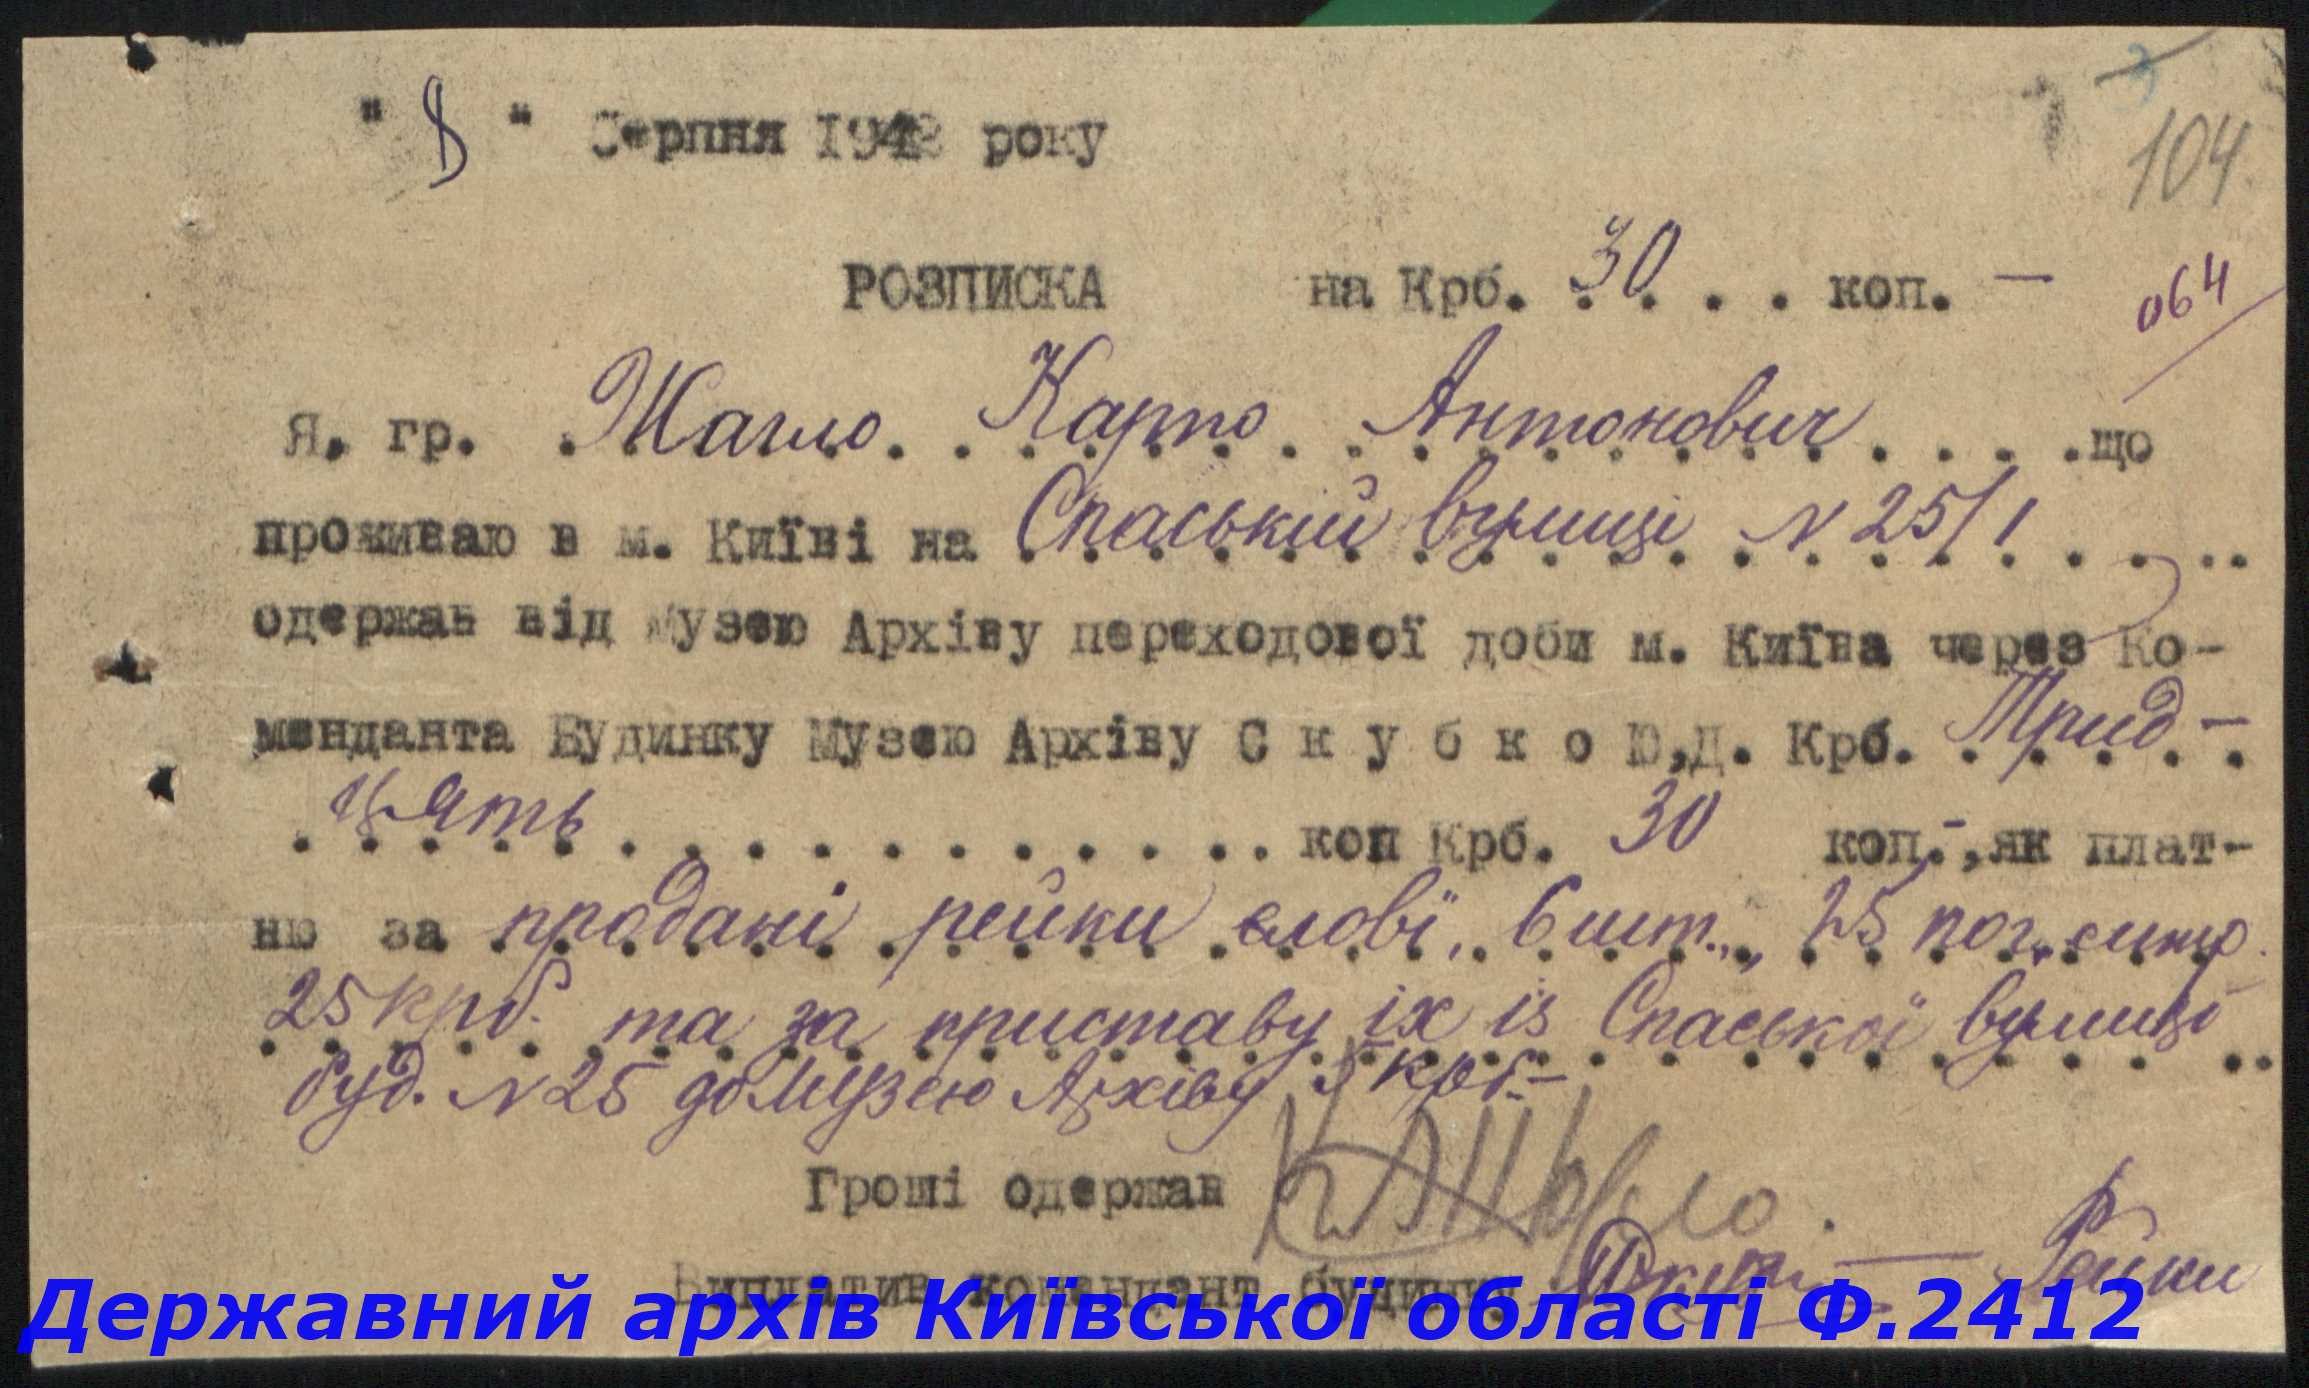 3
104
" 8 " Серпня 1942 року
РОЗПИСКА на Крб. 30 . . коп. —
064
Я, гр. . Жагло . . Карпо . . Антонович . . . . що
проживаю в м. Київі на Спаській вулиці N 25/1 . . . .
одержав від Музею Архіву переходової доби м. Київа через Ко-
менданта Будинку Музею Архіву С к у б к о Ю.Д. Крб. Трид-
цять . . . . . . . . . . коп Крб. 30 коп.-, як плат-
ню за продані рейки єлові, 6 шт., 25 пог.
25 крб. та за приставу їх із Спаської вулиці
буд. N 25 до Музею Архіву 5 крб.-
Гроші одержав
Виплатив комендант будинку
Рейки
Державний архів Київської області Ф.2412